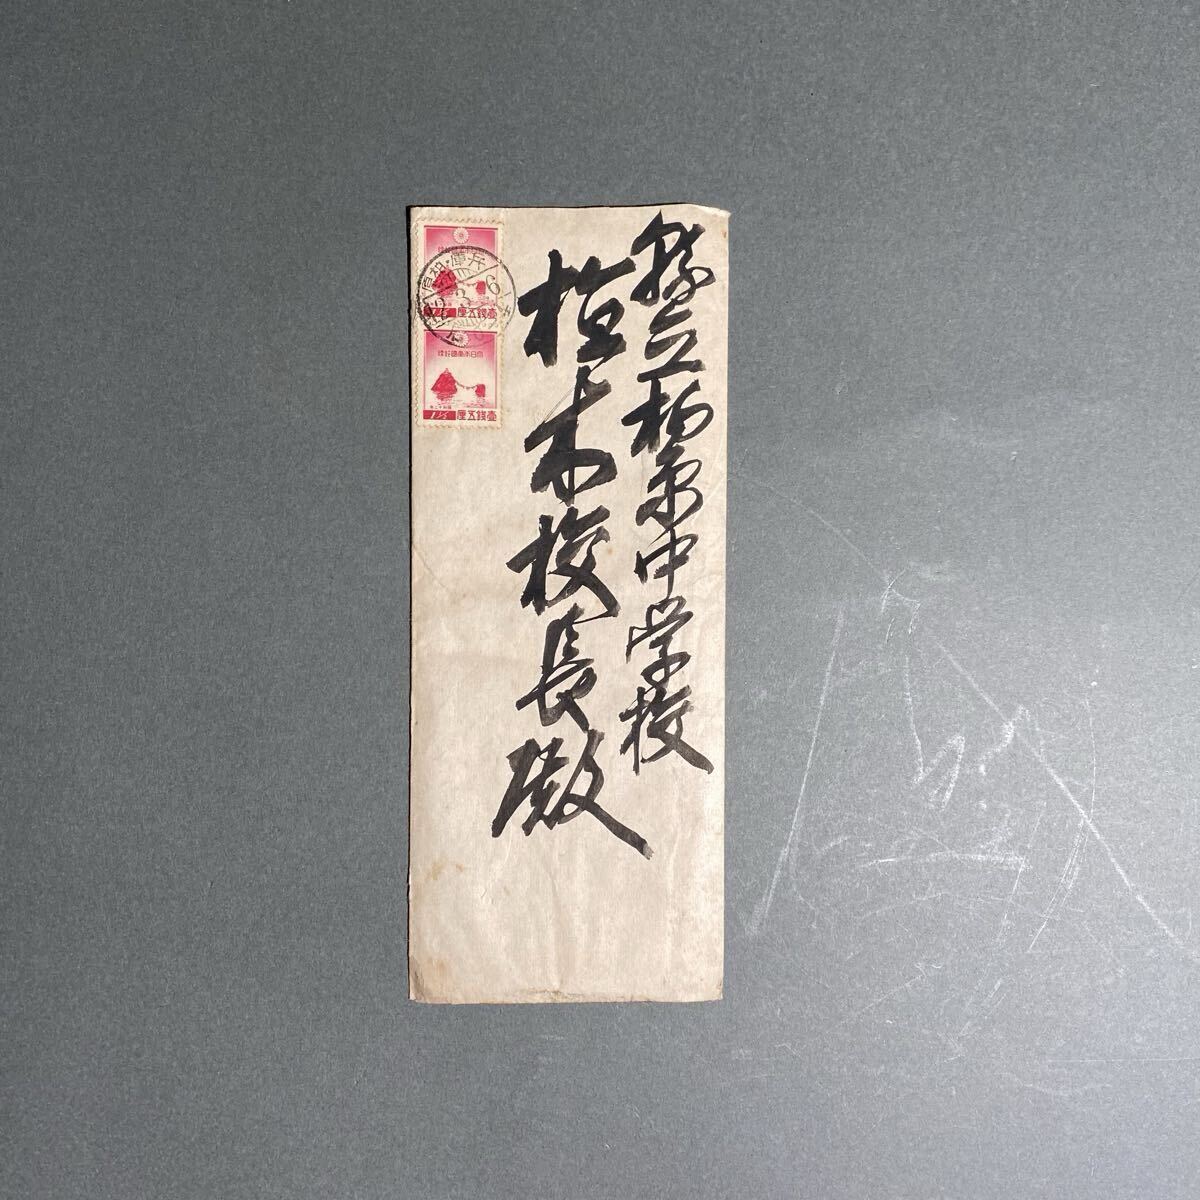 縣立柏原中学校
植木校長殿
大日本帝國郵便
壹錢五厘
1½
大日本帝國郵便
昭和十二年
壹錢五厘
1½
兵庫・柏原